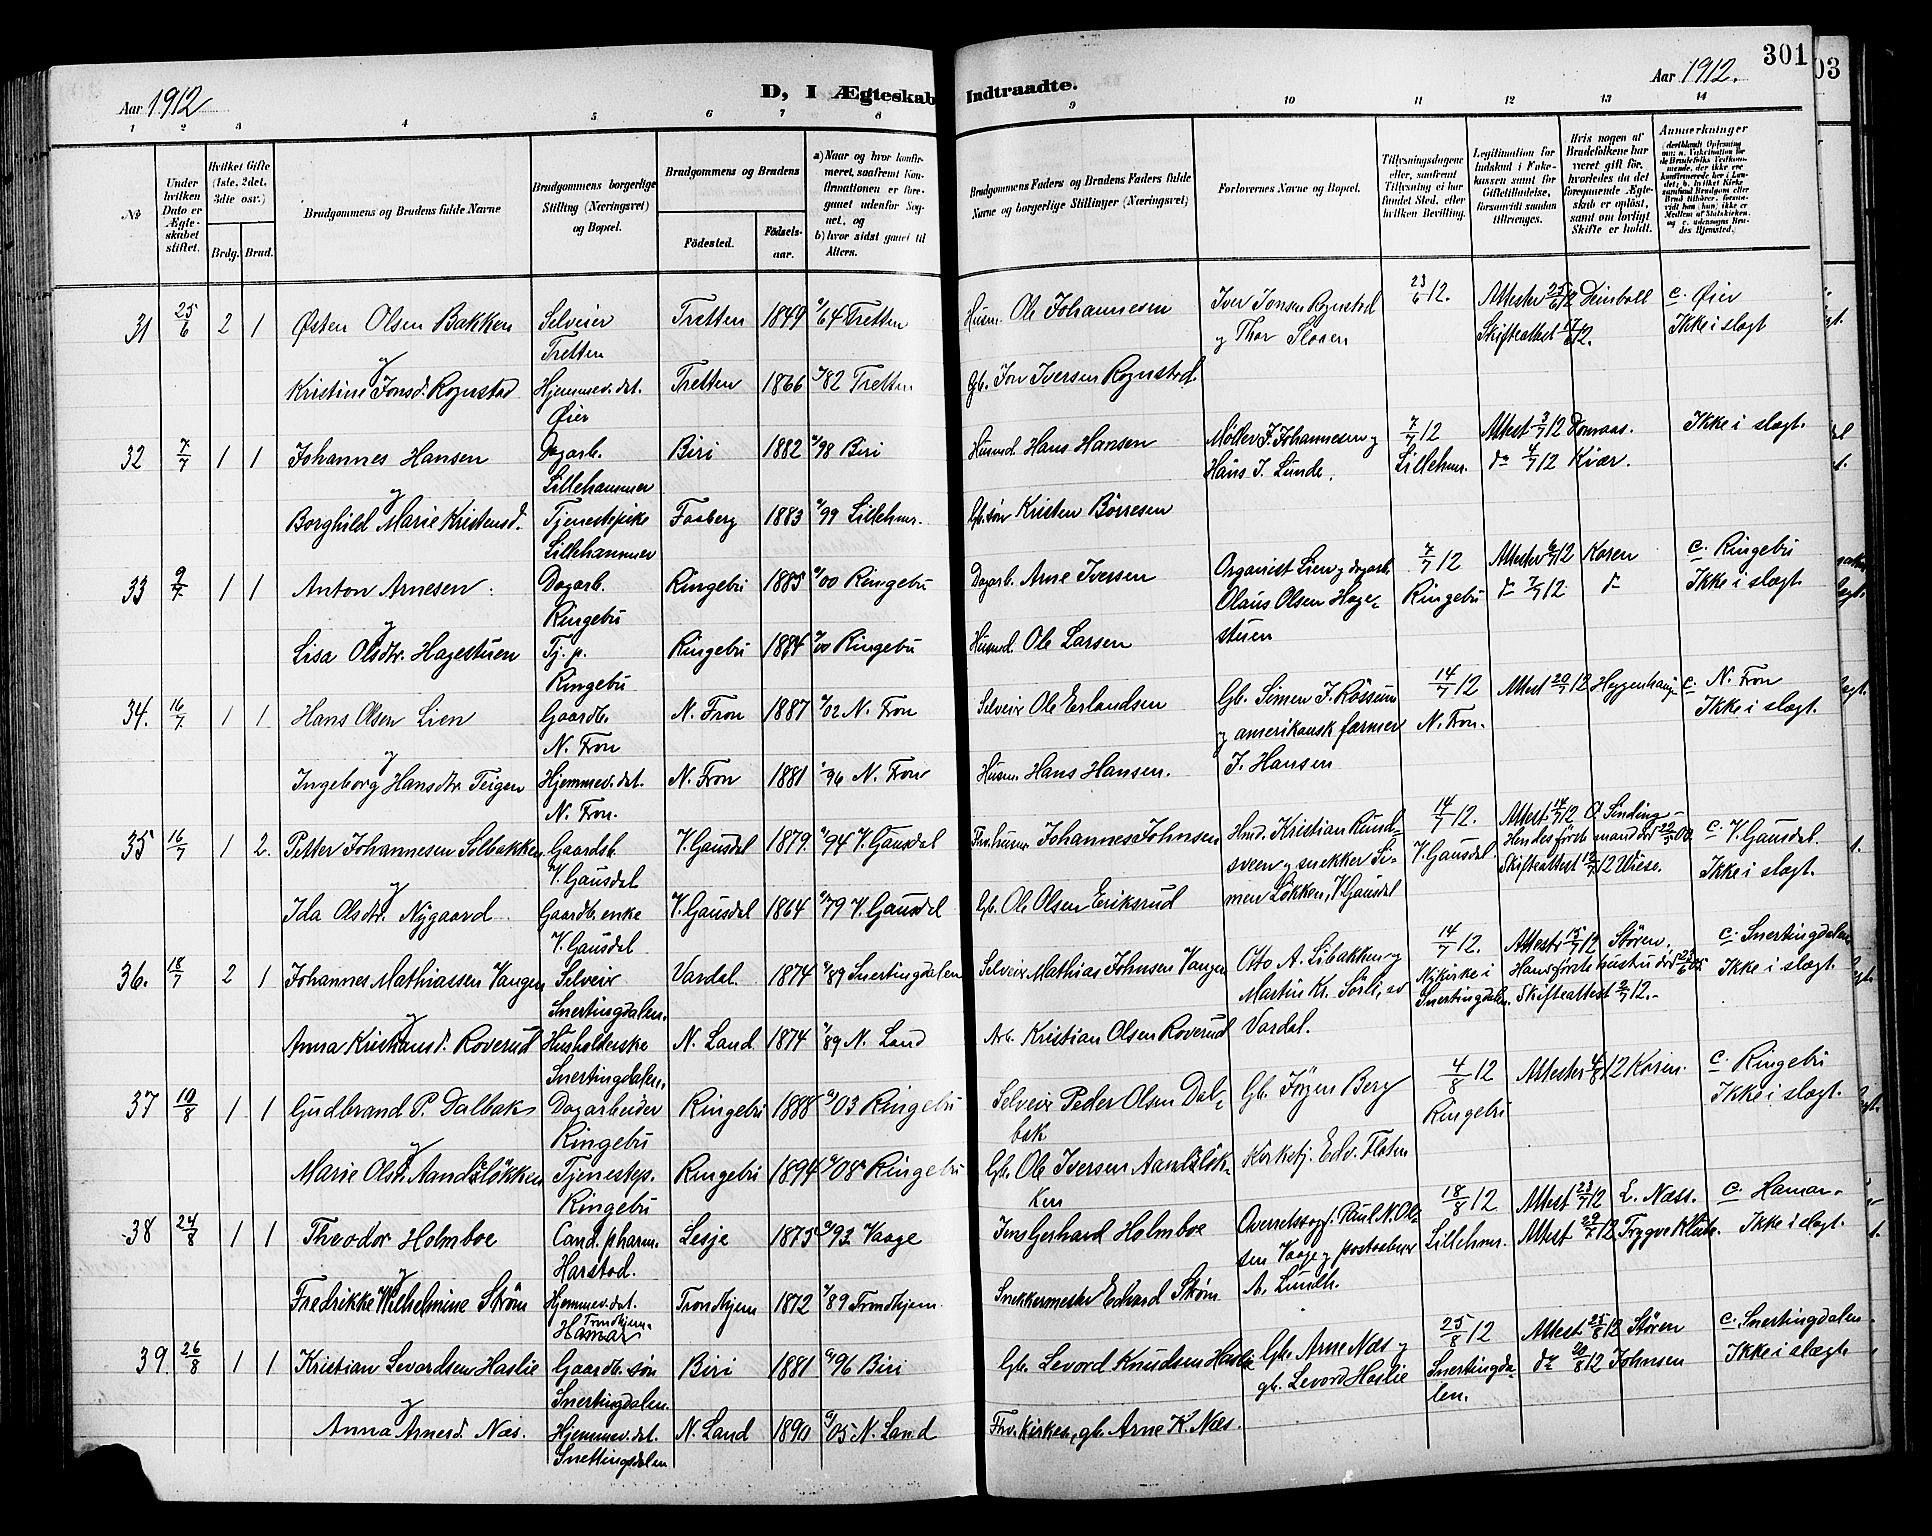 301
03
Aar 1912
D, I Ægteskab Indtraadte.
Aar 1912.
1 2 3 4 5 6 7 8 9 10 11 12 13 14
No
Under hvilken Dato er Ægteskabet stiftet.
Hvilket Gifte (1ste, 2det, 3die osv.)
Brdg. Brud.
Brudgommens og Brudens fulde Navne
Brudgommens borgerlige Stilling (Næringsvei) og Bopæl.
Brudgommens og Brudens
Fødested. Fødselsaar.
a) Naar og hvor konfirmeret, saafremt Konfirmationen er foregaaet udenfor Sognet, og
b) hvor sidst gaaet til Alters.
Brudgommens Faders og Brudens Faders fulde Navne og borgerlige Stillinger (Næringsvei)
Forlovernes Navne og Bopæl.
Tillysningsdagene eller, saafremt Tillysning ei har fundet Sted, efter hvilken Bevilling.
Legitimation for Indskud i Enkekassen samt for Giftetilladelse, forsaavidt saadan tiltrænges.
Hvis nogen af Brudefolkene har været gift før, hvorledes da det foregaaende Ægteskab er opløst, samt om lovligt Skifte er holdt.
Anmærkninger
31 25/6 2 1 Østen Olsen Bakken Selveier Tretten Tretten 1849 64 Tretten Husm. Ole Johannesen Iver Jonsen Rognstad og Thor Slaaen 23/6 12. Attester 25/6 12 Deinboll Skifteattest 12. c. Øier Ikke i slægt
og
Kristine Jonsd. Rognstad Hjemmev. dat. Øier Tretten 1866 82 Tretten Gb. Jon Iversen Rognstad.
32 7/7 1 1 Johannes Hansen Dagarb. Lillehammer Biri 1882 98 Biri Husmd. Hans Hansen Møller J. Johannesen og Hans J. Lunde. 7/7 12 Lillehmr. Attest 3/7 12 Domaas. do 4/7 12 Kiær. Ikke i slægt.
og
Borghild Marie Kristensd. Tjenestepike Lillehammer Faaberg 1883 99 Lillehmr. Gb. søn Kristen Börresen
33 9/7 1 1 Anton Arnesen Dagarb. Ringebu Ringebu 1885 00 Ringebu Dagarb. Arne Iversen Organist Lien og dagarb. Olaus Olsen Hagestuen 7/7 12 Ringebu Attester 6/7 12 Koren do 7/7 12. do c. Ringebu Ikke i slægt.
og
Lisa Olsdtr. Hagestuen Tj. p. Ringebu Ringebu 1884 00 Ringebu Husmd. Ole Larsen
34. 16/7 1 1 Hans Olsen Lien Gaardb. N. Fron N. Fron 1887 02 N. Fron Selveier Ole Erlandsen Gb. Simen J. Rössum og amerikansk farmer J. Hansen 14/7 12 N. Fron. Attest 20/7 12 Heggenhaug c. N. Fron Ikke i slægt.
og
Ingeborg Hansdtr. Teigen Hjemmev. dat. N. Fron. N. Fron 1881 96 N. Fron Husm. Hans Hansen.
35 16/7 1 2. Petter Johannesen Solbakken Gaardsb. V. Gausdal V. Gausdal 1879. 94 V. Gausdal Fhv. husm. Johannes Johnsen Hmd. Kristian Rundsveen og snekker Simen Løkken, V. Gausdal 14/7 12. V. Gausdal. Attest. 14/7 12 O. Sinding. Hendes første mand død 00 Skifteattest 12/7 12 Wiese. c. V. Gausdal. Ikke i slægt.
og
Ida Olsdtr. Nygaard Gaardb. enke V. Gausdal V. Gausdal 1864 79 V. Gausdal Gb. Ole Olsen Eriksrud
36. 18/7 2 1 Johannes Mathiassen Vangen Selveier Snertingdalen. Vardal. 1874 89 Snertingdalen Selveier Mathias Johnsen Vangen Otto A. Libakken og Martin Kr. Sörli, Vardal. 14/7 12. Nykirke i Snertingdalen. Attester 15/7 12 Støren. Hans første hustru død 05. Skifteattest 2/7 12. c. Snertingdalen Ikke i slægt.
og
Anna Kristiansd. Roverud Husholderske Snertingdalen. N. Land. 1874 89 N. Land Arb. Kristian Olsen Roverud
37 10/8 1 1 Gudbrand P. Dalbak Dagarbeider Ringebu Ringebu 1888 03 Ringebu Selveier Peder Olsen Dalbak Gb. Jörgen Berg 4/8 12 Ringebu Attester 4/8 12 Koren. c. Ringebu Ikke i slægt.
og
Marie Olsd. Aandsløkken Tjenestep. Ringebu Ringebu 1894 08 Ringebu Gb. Ole Iversen Aandsløkken Kirketj. Edv. Flaten
38 24/8 1 1 Theodor Holmboe Cand. pharm. Harstad. Lesje 1875 93 Vaage Jens Gerhard Holmboe Overretssagf. Paul N. Olsen Vaage og postaabner A. Lundh. 18/8 12 Lillehmr. Attest 23/7 12 L. Næss. Attest 29/7 12 Trygve Klüwer. c. Hamar. Ikke i slægt.
og
Fredrikke Wilhelmine Strøm Hjemmev. dat. Trondhjem. Hamar Trondhjem 1872 89 Trondhjem. Snekkermester Edvard Strøm
39. 26/8 1 1 Kristian Levordsen Haslie Gaardb. søn Snertingdalen. Biri 1881 96 Biri Gb. Levord Knudsen Haslie Gb. Arne Næs og gb. Levord Haslie 25/8 12 Snertingdalen. Attest 25/8 12 Støren do 20/8 12 Johnsen c. Snertingdalen. Ikke i slægt.
og
Anna Arnesd. Næs. Hjemmev. dat. Snertingsdalen N. Land 1890 05 N. Land Fhv. Kirkes., gb. Arne K. Næs.